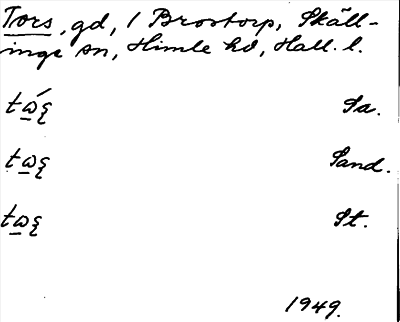 Tors, gd, 1 Brostorp, Skäll-
inge sn, Himle hd, Hall. l.
Sa.
Sand.
St.
1949.